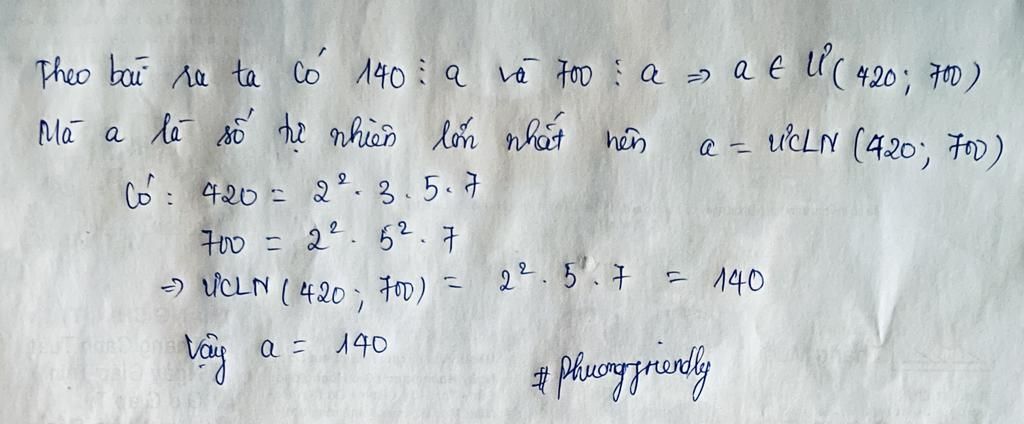 Theo bài ra ta có 140 ⋮ a và 700 ⋮ a ⇒ a ∈ Ư(420; 700)
Mà a là số tự nhiên lớn nhất nên a = ƯCLN (420; 700)
Có: 420 = 2². 3. 5. 7
700 = 2². 5². 7
⇒ ƯCLN (420; 700) = 2². 5. 7 = 140
Vậy a = 140
# Phuongfriendly